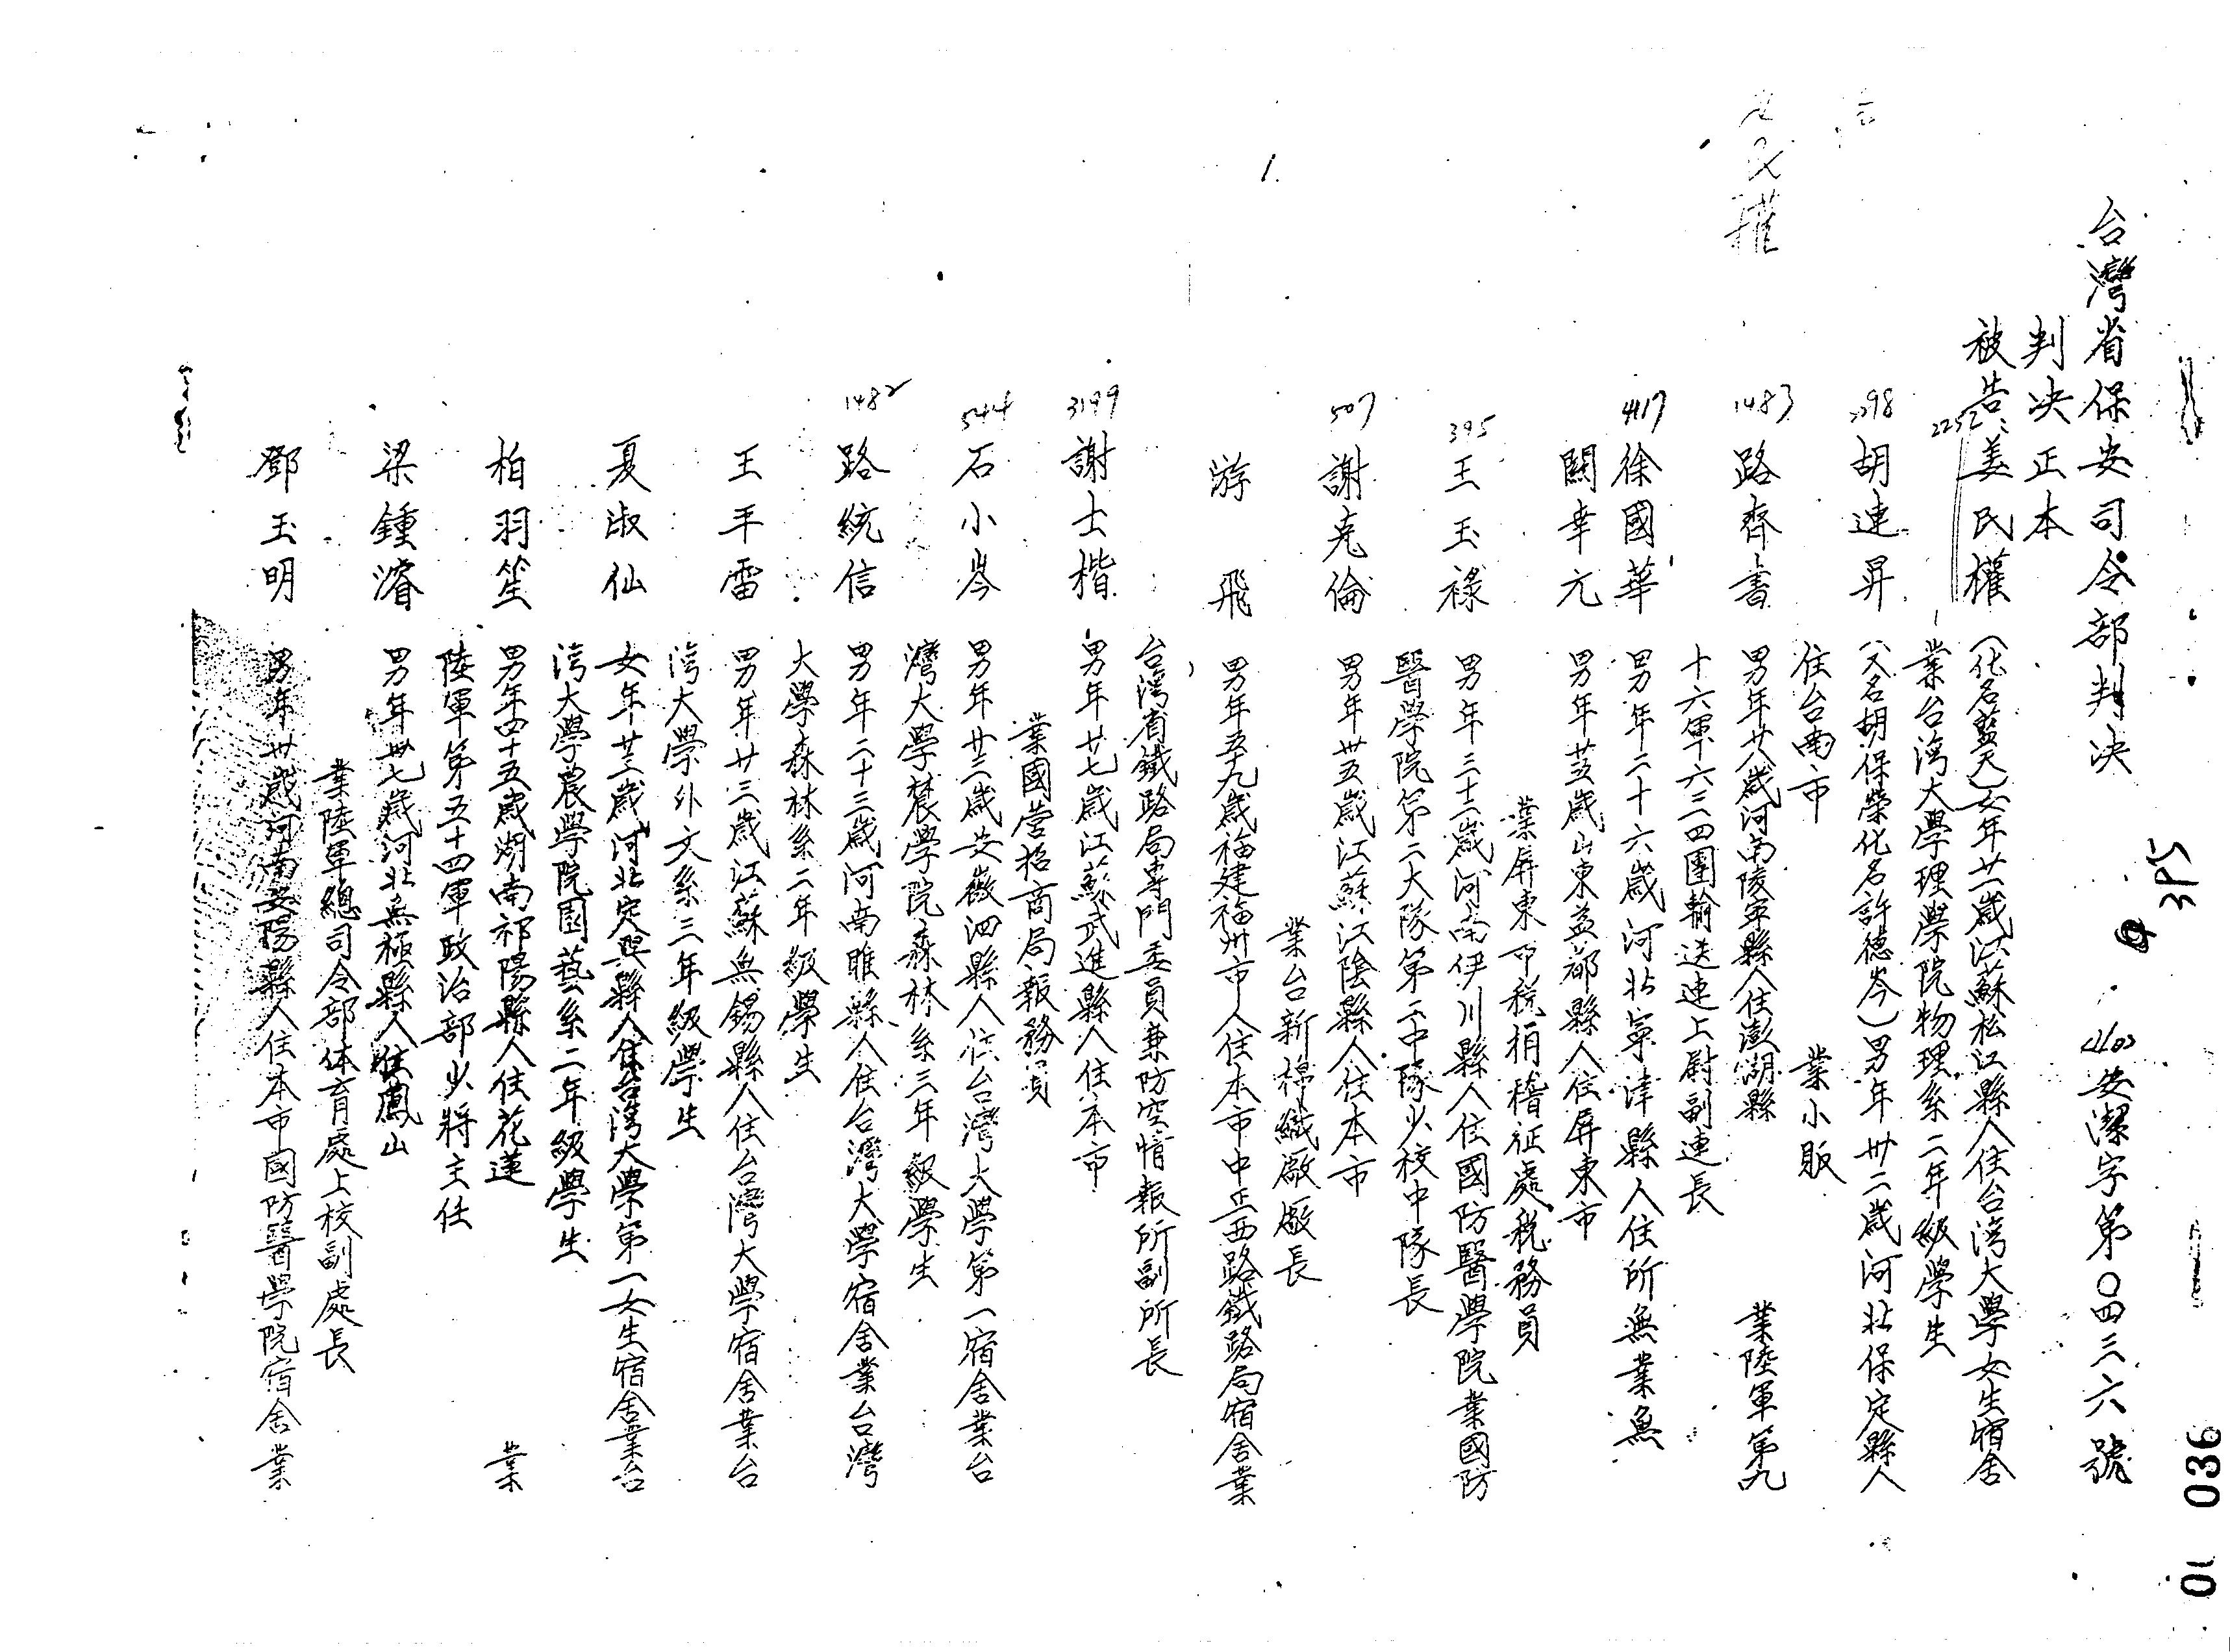 台灣省保安司令部判決 (40)安潔字第〇四三六號
判決正本
被告 姜民權 (化名藍天)女年廿一歲江蘇松江縣人住台湾大學女生宿舍
業台湾大學理學院物理系二年級學生
胡連昇 (又名胡保榮化名許德岑)男年卅二歲河北保定縣人
住台南市 業小販
路齊書 男年廿八歲河南陵寧縣人住澎湖縣 業陸軍第九
十六軍六三四團輸送連上尉副連長
徐國華 男年二十六歲河北寧津縣人住所無業無
關幸元 男年廿五歲山東益都縣人住屏東市
業屏東市稅捐稽征處稅務員
王玉祿 男年三十二歲河南伊川縣人住國防醫學院業國防
醫學院第二大隊第二中隊少校中隊長
謝克倫 男年卅五歲江蘇江陰縣人住本市
業台新棉織廠廠長
游飛 男年五十九歲福建福州市人住本市中正西路鐵路局宿舍業
台灣省鐵路局專門委員兼防空情報所副所長
謝士楷 男年廿七歲江蘇武進縣人住本市
業國營招商局報務員
石小岑 男年廿三歲安徽泗縣人住台灣大學第一宿舍業台
灣大學農學院森林系三年級學生
路統信 男年二十三歲河南睢縣人住台灣大學宿舍業台灣
大學森林系二年級學生
王平雷 男年廿三歲江蘇無錫縣人住台灣大學宿舍業台
湾大學外文系三年級學生
夏淑仙 女年廿三歲河北定興縣人住台湾大學第一女生宿舍業台
湾大學農學院園藝系二年級學生
柏羽笙 男年四十五歲湖南祁陽縣人住花蓮 業
陸軍第五十四軍政治部少將主任
梁鍾濬 男年卅七歲河北無極縣人住鳳山
業陸軍總司令部体育處上校副處長
鄧玉明 男年卅歲河南安陽縣人住本市國防醫學院宿舍業
2252
1483
4417
395
507
3199
544
1482
395
01 036